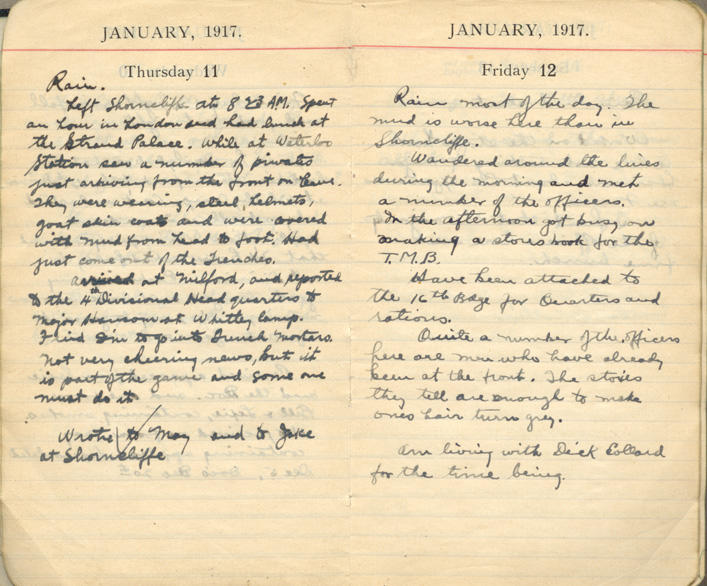 JANUARY, 1917.
Thursday 11
Rain.
Left Shorncliffe at 8 23 AM. Spent
an hour in London and had lunch at
the Strand Palace. While at Waterloo
Station saw a number of privates
just arriving from the front on leave.
They were wearing, steel, helmets,
goat skin coats and were covered
with mud from head to foot. Had
just come out of the Trenches.
Arrived at Milford, and reported
to the 4th Divisional Head quarters to
Major at Whitley Camp.
Find I'm to go into Trench mortars.
Not very cheering news, but it
is part of the game and some one
must do it.
Wrote to May and to Jake
at Shorncliffe
JANUARY, 1917.
Friday 12
Rain most of the day. The
mud is worse here than in
Shorncliffe.
Wandered around the lines
during the morning and met
a number of the officers.
In the afternoon got busy on
making a stores book for the
T.M.B.
Have been attached to
the 16th Bdge for Quarters and
rations.
Quite a number of the officers
here are men who have already
been at the front. The stories
they tell are enough to make
ones hair turn grey.
Am living with Dick
for the time being.